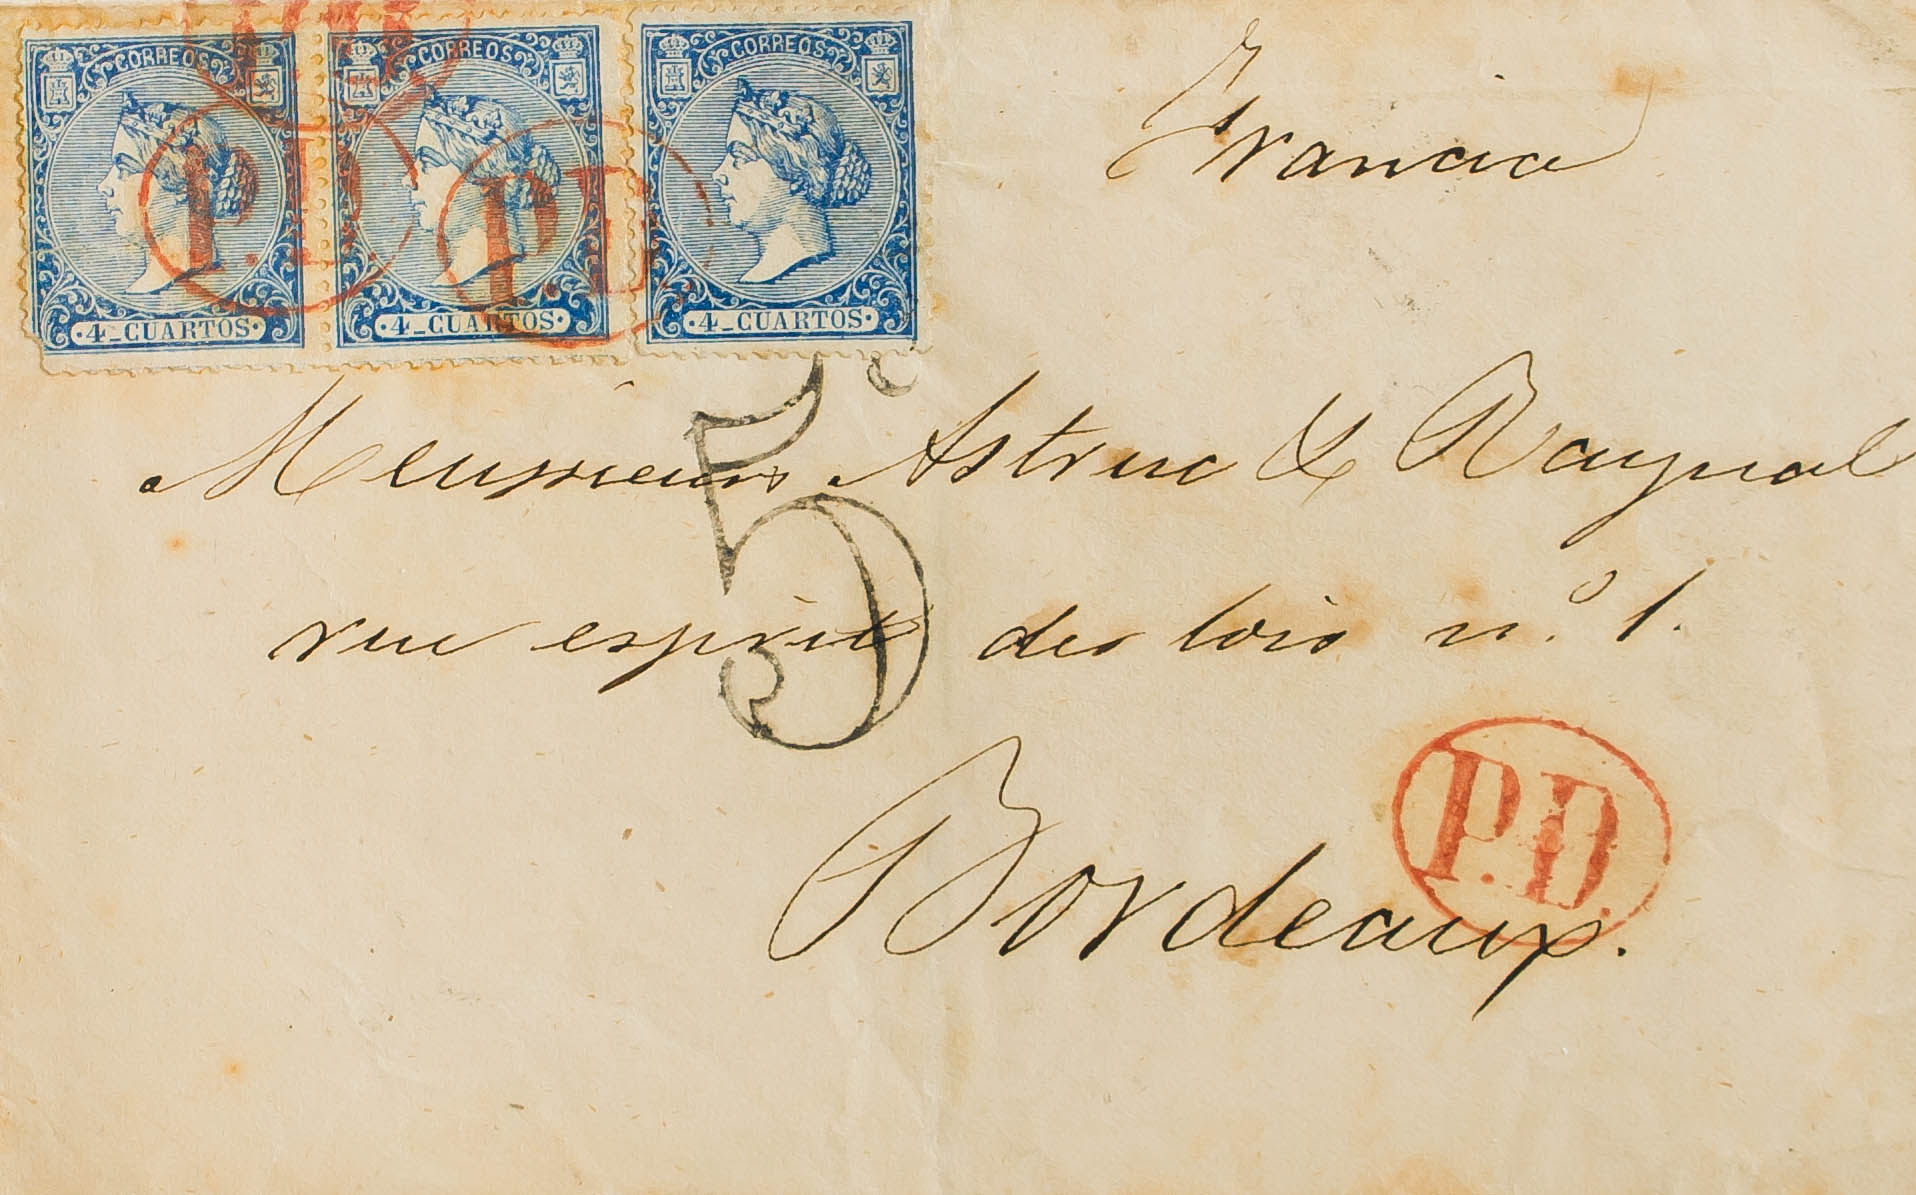 CORREOS CORREOS CORREOS
P.D P.D
4_CUARTOS 4_CUARTOS 4_CUARTOS
Francia
5
Meussieurs Astruc & Raynal
rue esprit des lois n.º 1.
P.D.
Bordeaux.